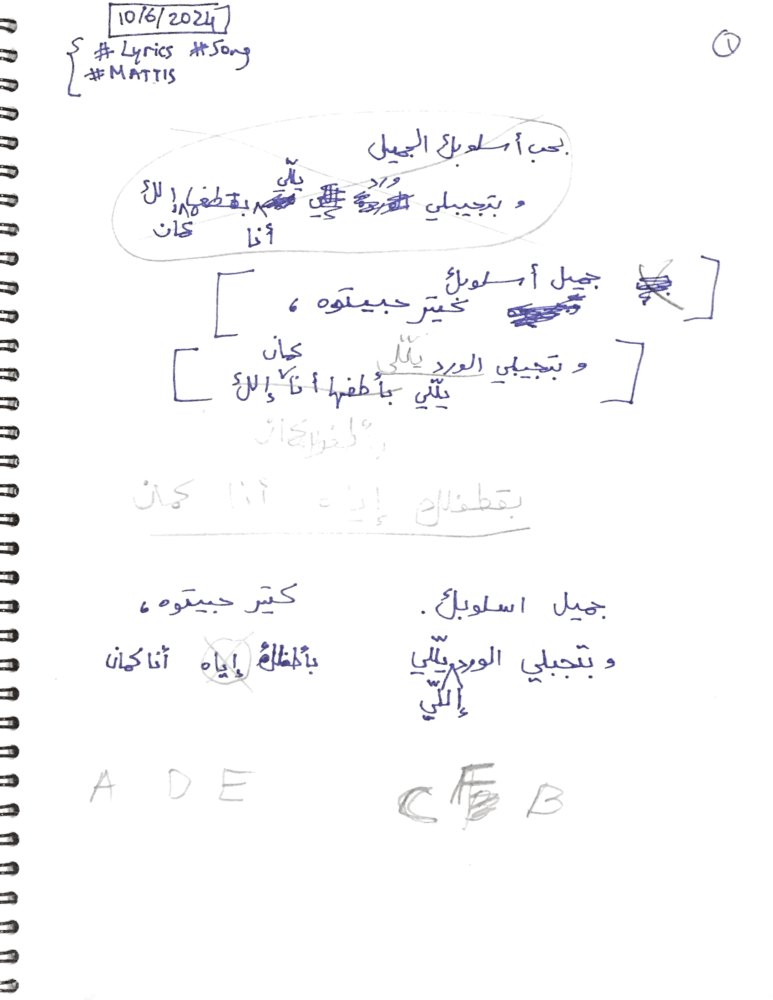 10/6/2024
# Lyrics # Song
# MATTIS
1
بحب أسلوبك الجميل
يلّي ورد
و بتجيبلي بقطفها إلك
أنا كمان
جميل أسلوبك
كتير حبيتوه ،
كمان
و بتجيبلي الورد يلّلي
يلّلي بأطفها أنا إلك
بقطفلك إياه أنا كمان
جميل اسلوبك . كتير حبيتوه ،
و بتجبلي الورد يلّلي بأطفلك إياه أنا كمان
إللّي
A D E C F B